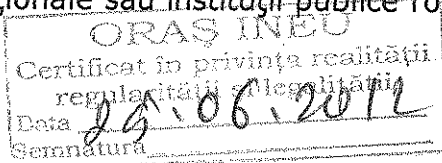 ționale sau instituții publice ro
ORAȘ INEU
Certificat în privința realității
regularității și legalității
Data 25.06.2012
Semnătura